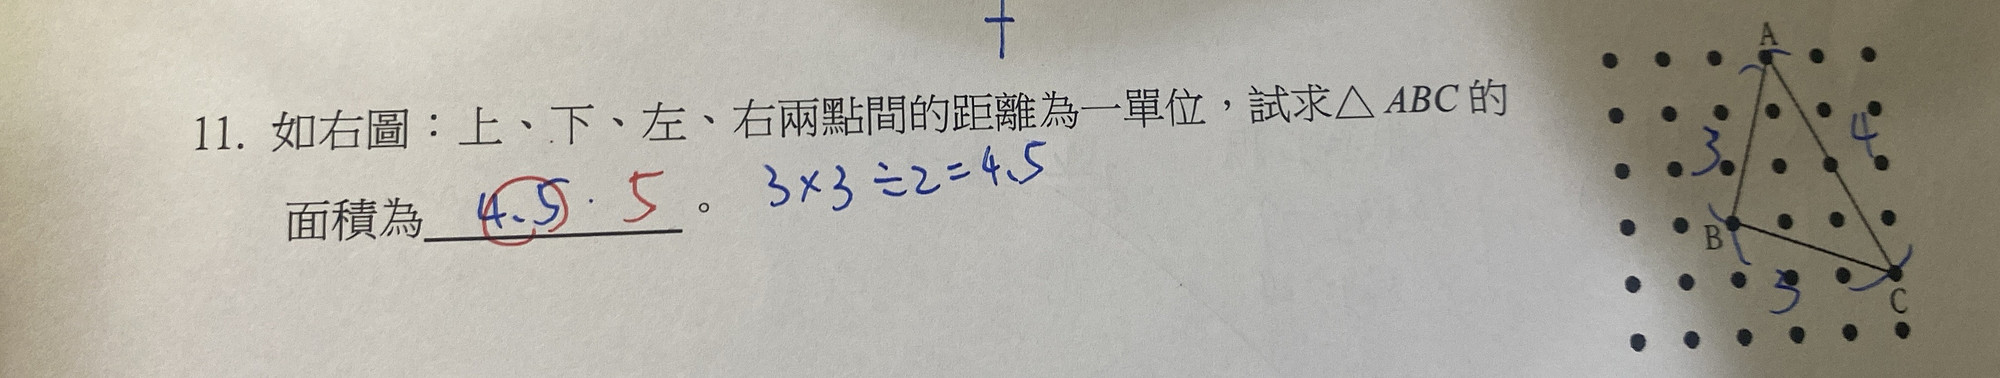 11. 如右圖：上、下、左、右兩點間的距離為一單位，試求△ABC的
面積為 4.5 · 5 。 3×3÷2=4.5
A
3 4
B
3
C